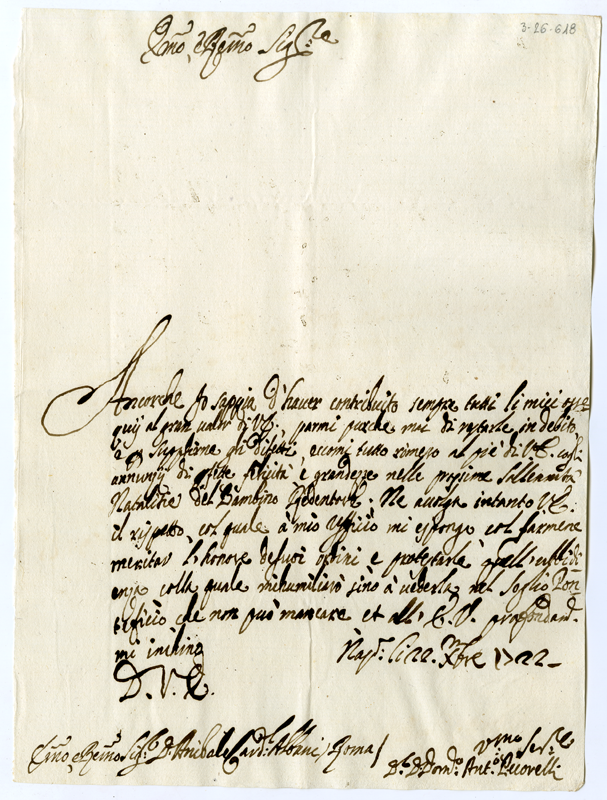 3-26-618
Em̃o, e Rem̃o Sig.re
Ancorche Jo sappia d'haver contribuito sempre tutti li miei osse
quij al gran valor di V.E., parmi purche mai di restarle in debito
e supplirne gli difetti, eccomi tutto rimesso al piè di V.E. cogl'
annunzij di felicità e grandezze nelle prossime sollennità
Natalitie del Bambino Redentore. Ne accolga intanto V.E.
il rispetto, col quale à mio ufficio mi espongo col farmene
meritar l'honore de suoi ordini e protestarle quell'ubbidi
enza colla quale mi humiliarò sino à vederla nel soglio Pon
teficio che non può mancare et all' E.V. profondam.
mi inchino
Nap. li 22 Xbre 1722
D. V. E.
Em̃o, e Rem̃o Sig. D. Anibale Card. Albani / Roma /
D. Dom. Ant. Pecorelli